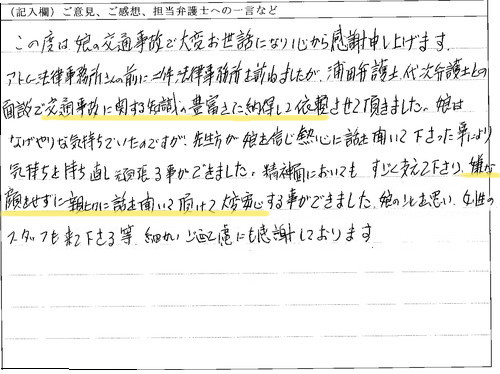 （記入欄）ご意見、ご感想、担当弁護士への一言など
この度は娘の交通事故で大変お世話になり心から感謝申し上げます。
アトム法律事務所さんの前に二件法律事務所を訪ねましたが、浦田弁護士、代次弁護士との
面談で交通事故に関する知識の豊富さに納得して依頼させて頂きました。娘は
なげやりな気持ちでいたのですが、先生方が娘を信じ熱心に話を聞いて下さった事により
気持ちを持ち直し頑張る事ができました。精神面においても すごく支えて下さり、嫌な
顔をせずに親切に話を聞いて頂けて大変安心する事ができました。娘の事を思い、女性の
スタッフも来て下さる等、細かい配慮にも感謝しております